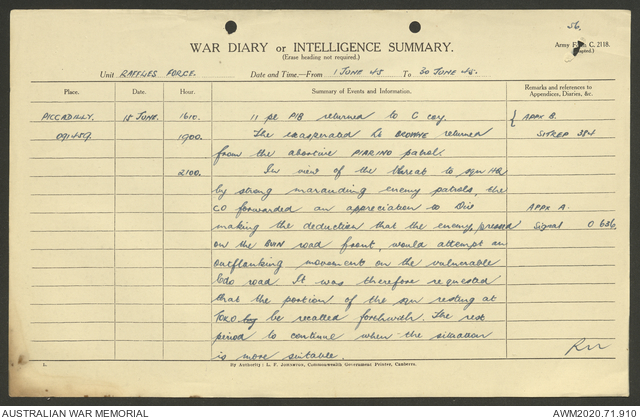 56.
WAR DIARY or INTELLIGENCE SUMMARY.
(Erase heading not required.)
Army C. 2118.
Unit RAFFLES FORCE. Date and Time.—From 1 JUNE 45 To 30 JUNE 45.
Place. Date. Hour. Summary of Events and Information. Remarks and references to Appendices, Diaries, &c.
PICCADILLY. 18 JUNE. 1610. 11 pl PIB returned to C coy. { APPX B.
091459. 1900. The exasperated Lt returned SITREP 384
from the abortive PIARINO patrol.
2100. In view of the threat to sqn HQ
by strong marauding enemy patrols, the
CO forwarded an appreciation to Div APPX A.
making the deduction that the enemy, pressed Signal O 686.
on the BUIN road front, would attempt an
outflanking movement on the vulnerable
Cdo road. It was therefore requested
that the portion of the sqn resting at
TOKO be recalled forthwith. The rest
period to continue when the situation
is more suitable.
1. By Authority: L. F. Johnston, Commonwealth Government Printer, Canberra.
AUSTRALIAN WAR MEMORIAL AWM2020.71.910